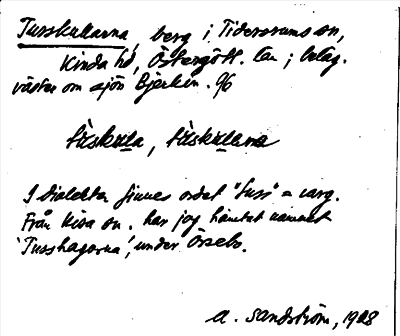 Tusskullarna, berg i Tidersrums sn,
Kinda hd, Östergötl. län; beläg.
väster om sjön Björken. 96
tùskùla, tùskùlana
I dialekten finnes ordet "tuss" = varg.
Från Kisa sn. har jag hämtat namnet
'Tusshagarna', under Örsebo.
A. Sandström, 1908